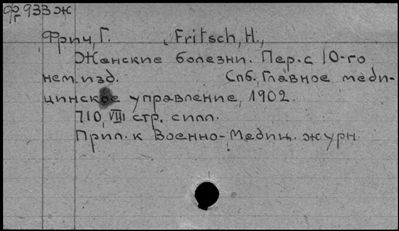 Фг 933ж
Фрич, Г. ,Fritsch, H.,
Женские болезни. Пер. с 10-го
нем. изд. Спб, Главное меди-
цинское управление, 1902.
710, VIII стр. силл.
Прил. к Военно-Медиц. журн.